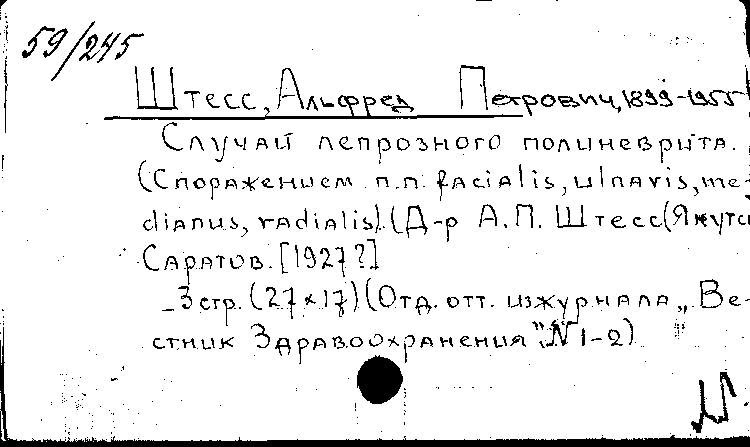 59/245
Штесс, Альфред Петрович, 1899-1955
Случай лепрозного полиневрита.
(С поражением п.п. facialis, ulnaris, me-
dianus, radialis). (Д-р А.П. Штесс (Якутс
Саратов. [1927?]
_3 стр. (27×17) (Отд. отт. из журнала „Ве-
стник Здравоохранения", N 1-2)